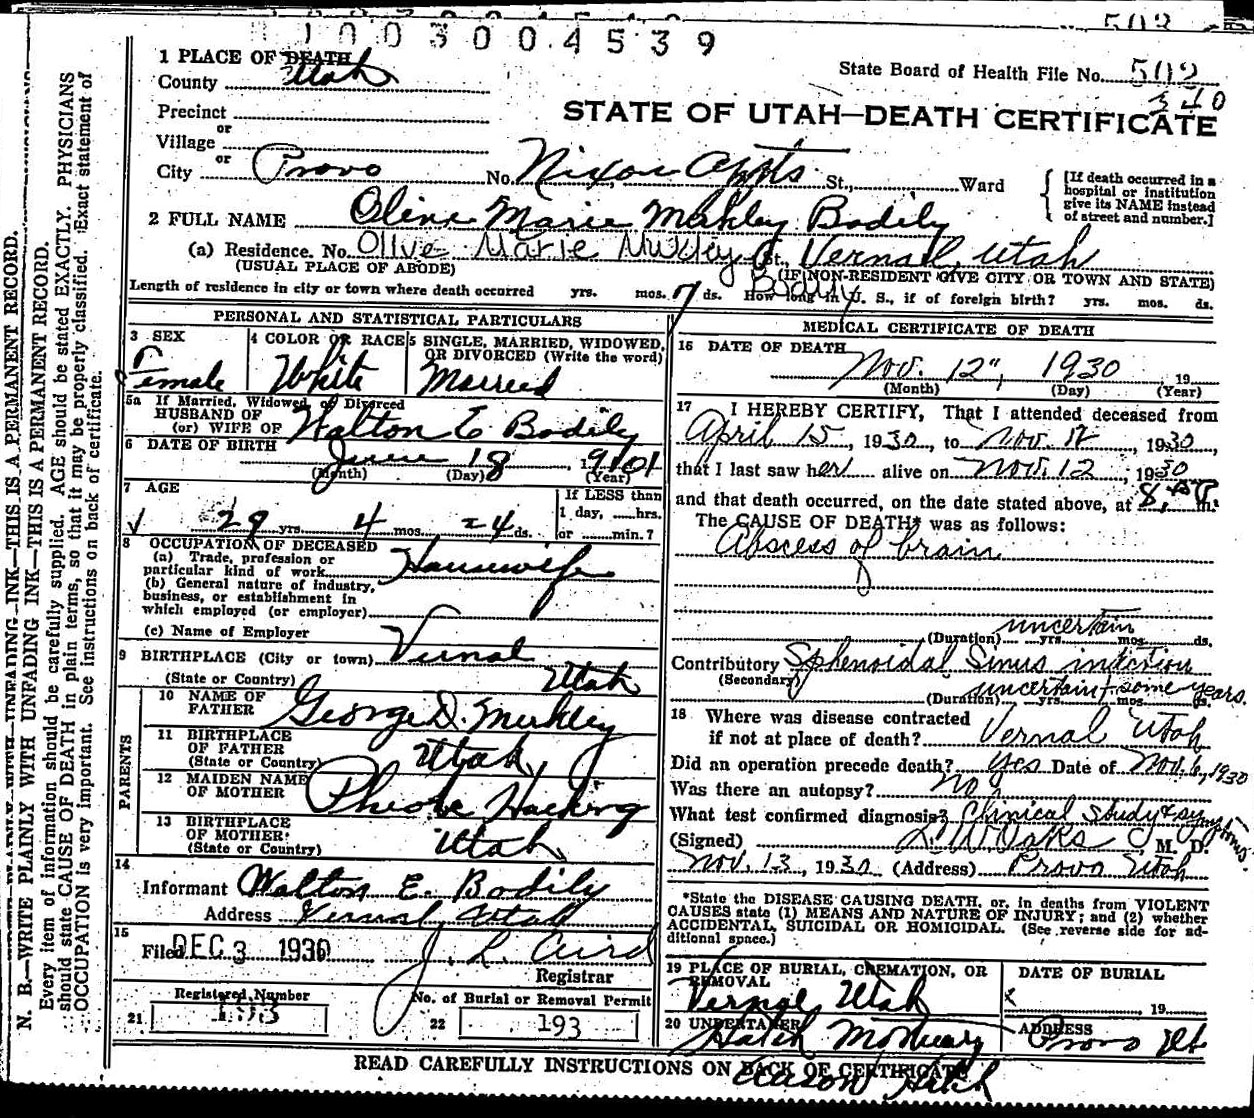 1003004539
1 PLACE OF DEATH
County Utah
State Board of Health File No. 502
340
Precinct
STATE OF UTAH—DEATH CERTIFICATE
or
Village
or
City Provo No. Nixon Appts St., Ward
[If death occurred in a hospital or institution give its NAME instead of street and number.]
2 FULL NAME Olive Marie Merkley Bodily
(a) Residence. No. Olive Marie Mukley St., Vernal, Utah
(USUAL PLACE OF ABODE) Bodily (IF NON-RESIDENT GIVE CITY OR TOWN AND STATE)
Length of residence in city or town where death occurred yrs. mos. 7 ds. How long in U. S., if of foreign birth? yrs. mos. ds.
PERSONAL AND STATISTICAL PARTICULARS
3 SEX
Female
4 COLOR OR RACE
White
5 SINGLE, MARRIED, WIDOWED, OR DIVORCED (Write the word)
Married
5a If Married, Widowed or Divorced
HUSBAND OF
(or) WIFE OF Walton E Bodily
6 DATE OF BIRTH June 18, 1901
(Month) (Day) (Year)
7 AGE
29 yrs. 4 mos. 24 ds.
If LESS than
1 day, ......hrs.
or ......min.?
8 OCCUPATION OF DECEASED
(a) Trade, profession or
particular kind of work Housewife
(b) General nature of industry,
business, or establishment in
which employed (or employer)
(c) Name of Employer
9 BIRTHPLACE (City or town) Vernal
(State or Country) Utah
PARENTS
10 NAME OF
FATHER George D. Merkley
11 BIRTHPLACE
OF FATHER Utah
(State or Country)
12 MAIDEN NAME
OF MOTHER Pheobe Hacking
13 BIRTHPLACE
OF MOTHER Utah
(State or Country)
14
Informant Walton E. Bodily
Address Vernal, Utah
15
Filed DEC 3 1930 J. L. Aird
Registrar
Registered Number
21 193
No. of Burial or Removal Permit
22 193
MEDICAL CERTIFICATE OF DEATH
16 DATE OF DEATH
Nov. 12", 1930 19
(Month) (Day) (Year)
17 I HEREBY CERTIFY, That I attended deceased from
April 15, 1930, to Nov. 12 1930,
that I last saw her alive on Nov. 12, 1930
and that death occurred, on the date stated above, at 8, P. m.
The CAUSE OF DEATH* was as follows:
Abscess of brain
uncertain
(Duration) yrs. mos. ds.
Contributory Sphenoidal Sinus infection
(Secondary)
uncertain, some years.
(Duration) yrs. mos. ds.
18 Where was disease contracted
if not at place of death? Vernal Utah
Did an operation precede death? Yes Date of Nov. 6, 1930
Was there an autopsy? No
What test confirmed diagnosis? Clinical Study & symptoms.
(Signed) L. W Oaks, M. D.
Nov. 13, 1930 (Address) Provo Utah
*State the DISEASE CAUSING DEATH, or, in deaths from VIOLENT
CAUSES state (1) MEANS AND NATURE OF INJURY; and (2) whether
ACCIDENTAL, SUICIDAL OR HOMICIDAL. (See reverse side for ad-
ditional space.)
19 PLACE OF BURIAL, CREMATION, OR
REMOVAL
Vernal Utah
DATE OF BURIAL
x 19
20 UNDERTAKER
Hatch Mortuary
ADDRESS
Provo Ut
READ CAREFULLY INSTRUCTIONS ON BACK OF CERTIFICATE
Hatch
N. B.—WRITE PLAINLY WITH UNFADING INK—THIS IS A PERMANENT RECORD.
Every item of information should be carefully supplied. AGE should be stated EXACTLY. PHYSICIANS
should state CAUSE OF DEATH in plain terms, so that it may be properly classified. Exact statement of
OCCUPATION is very important. See instructions on back of certificate.